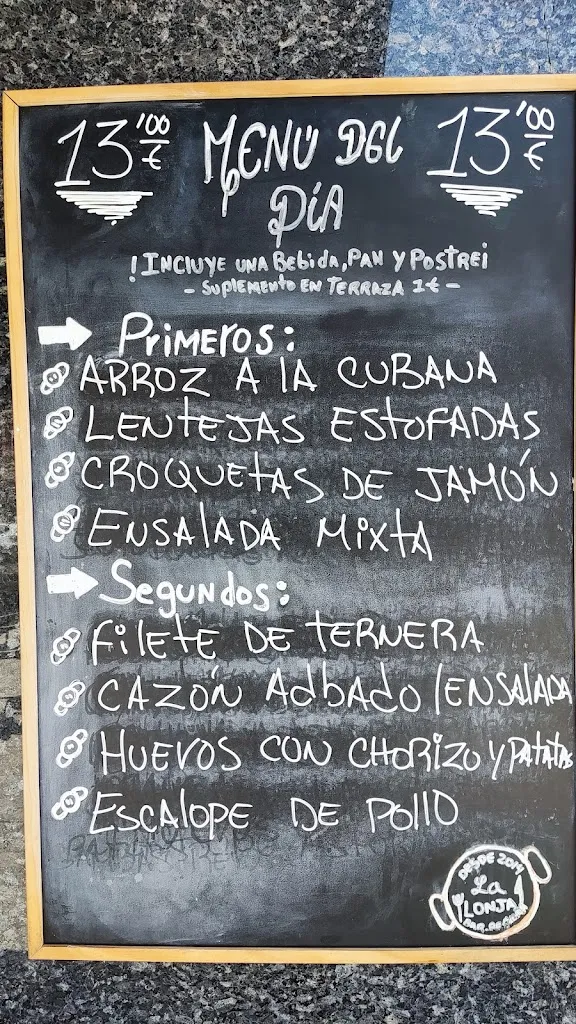 13'00 € MENÚ DEL 13'00 €
DÍA
¡INCLUYE UNA BEBIDA, PAN Y POSTRE!
- SUPLEMENTO EN TERRAZA 1€ -
PRIMEROS:
ARROZ A LA CUBANA
LENTEJAS ESTOFADAS
CROQUETAS DE JAMÓN
ENSALADA MIXTA
SEGUNDOS:
FILETE DE TERNERA
CAZÓN ADBADO/ENSALADA
HUEVOS CON CHORIZO Y PATATAS
ESCALOPE DE POLLO
DESDE 2011
La
LONJA